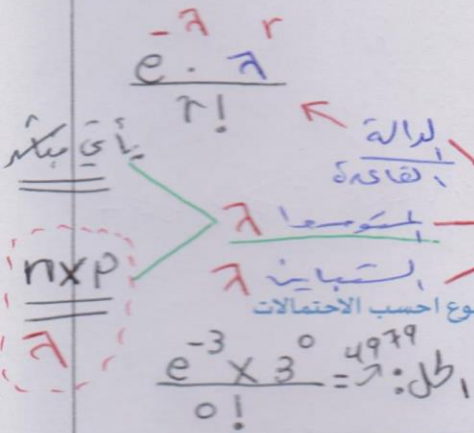 e^-λ · λ^r
r!
الدالة
القاعدة
يأتي مباشر
المتوسط λ
n×p
λ
التباين λ
وع احسب الاحتمالات
e^-3 × 3^0
0!
= 4979
الحل: